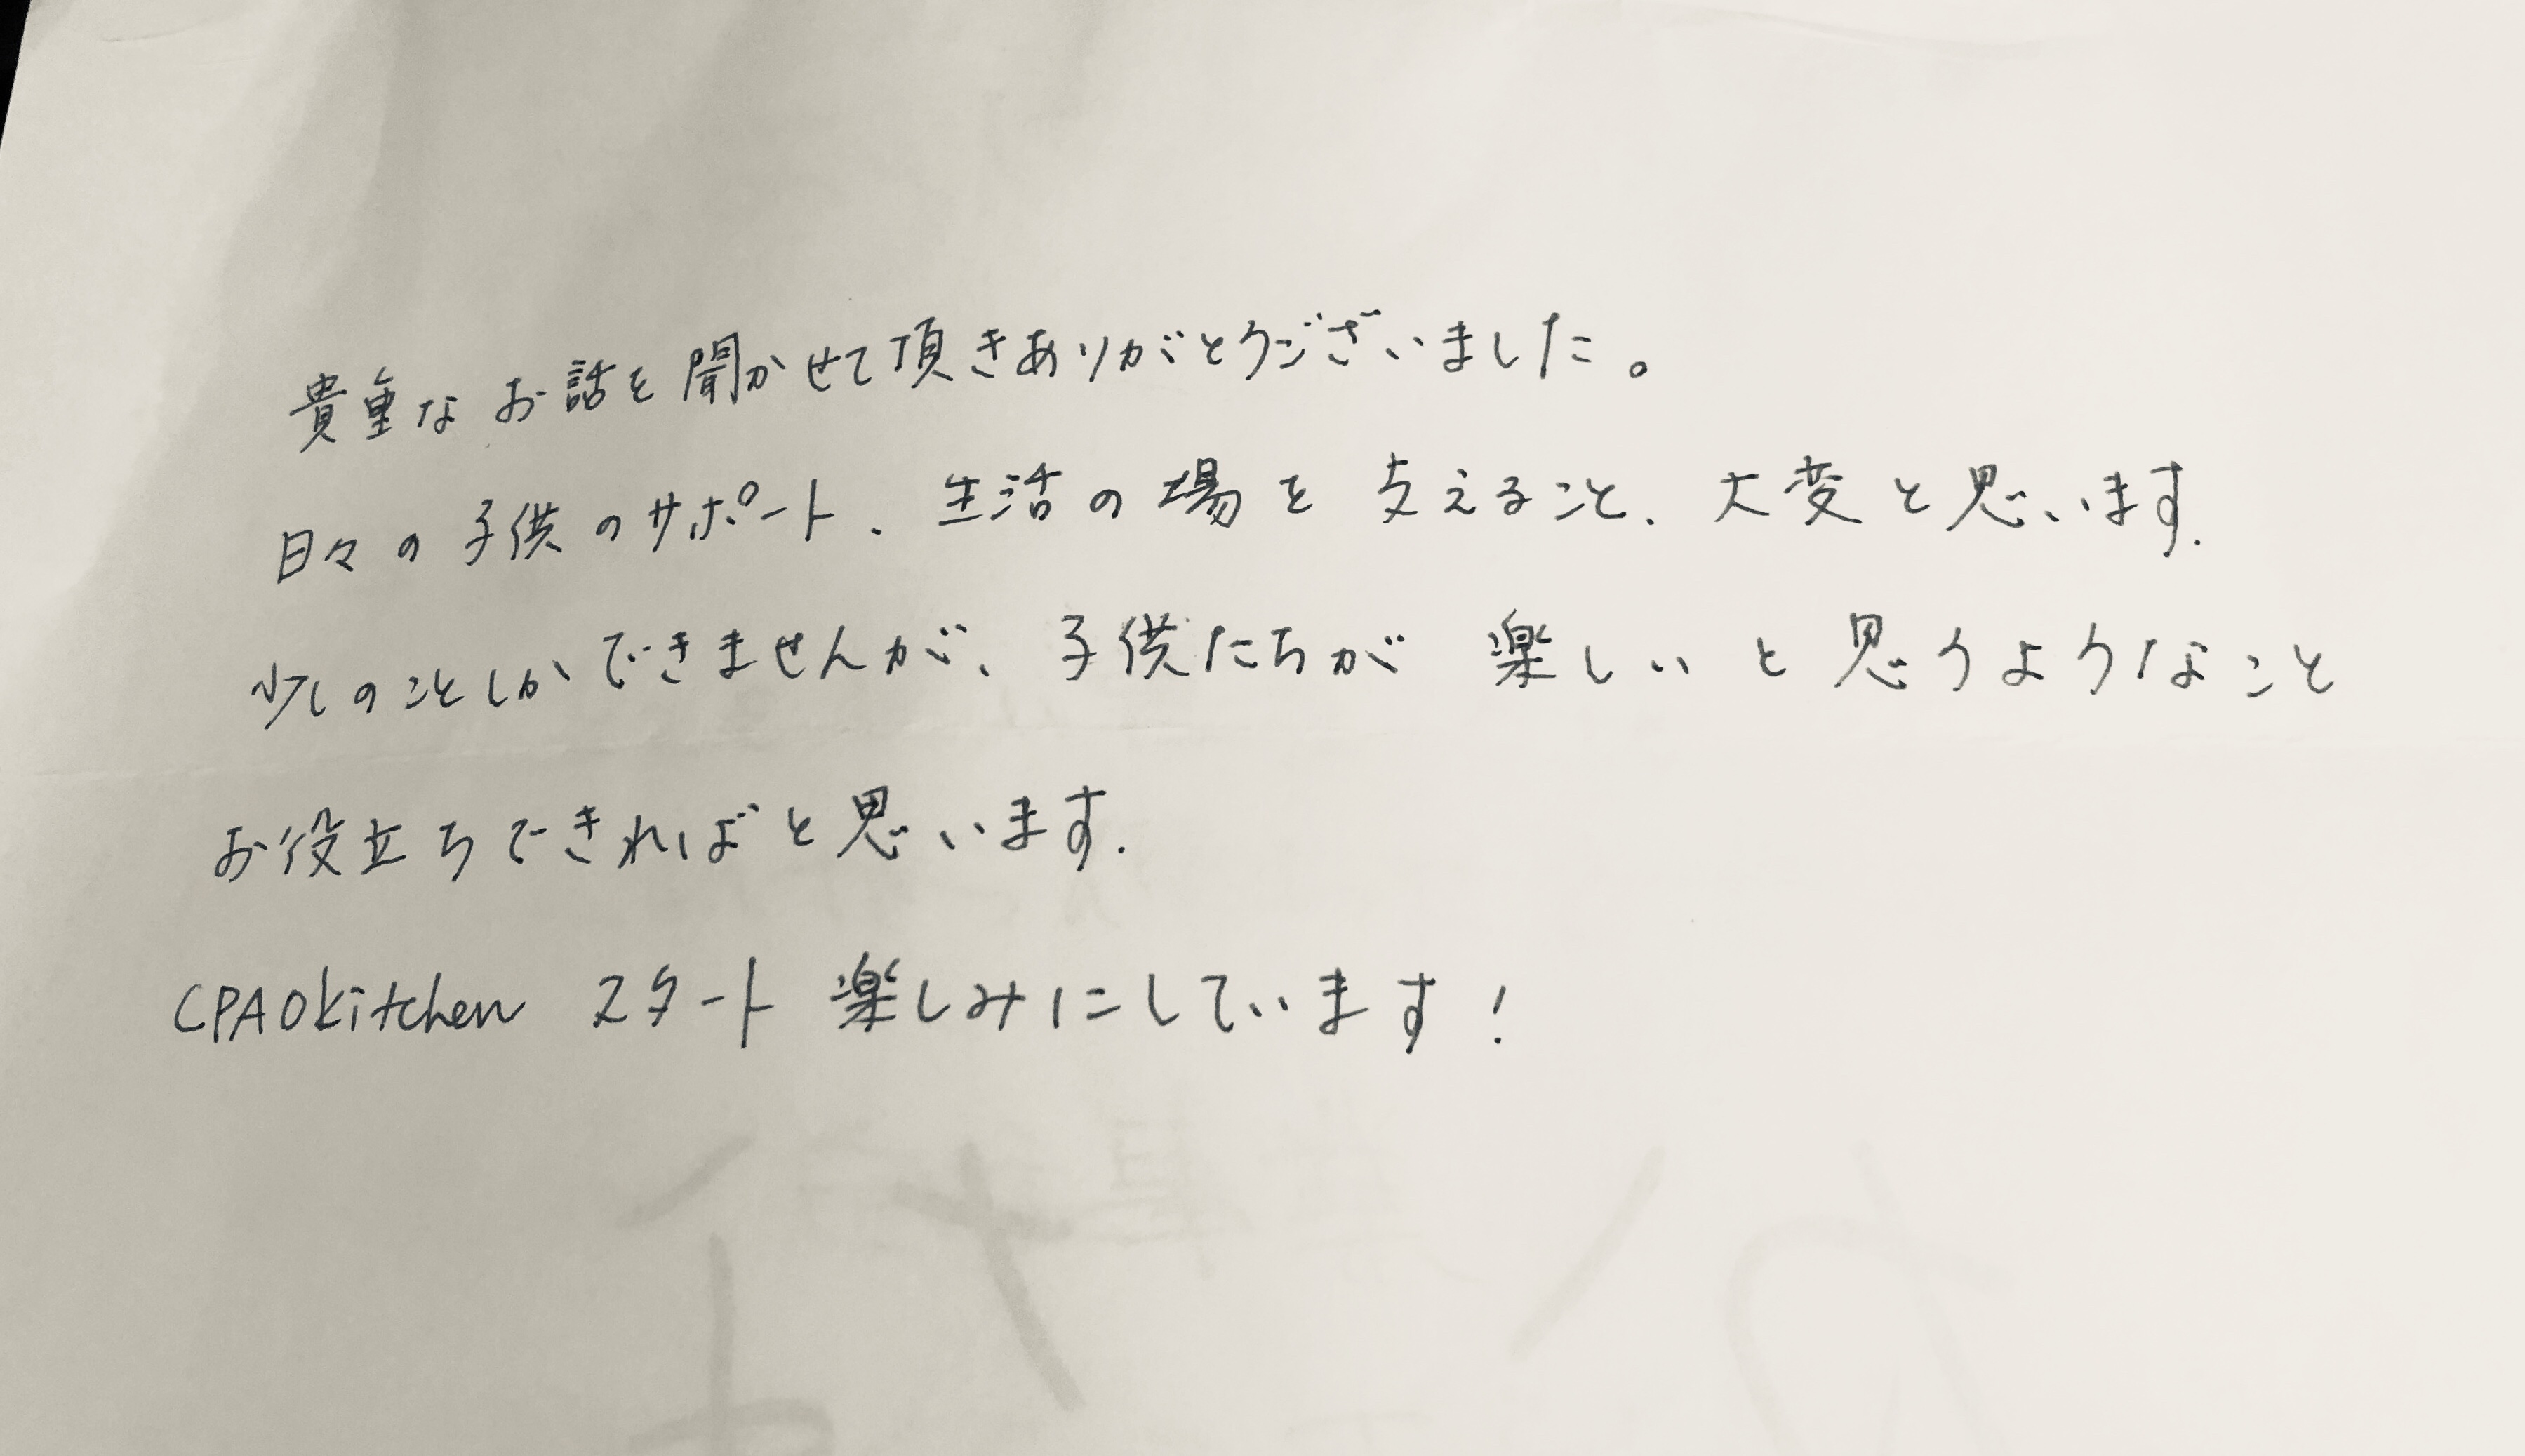 貴重なお話を聞かせて頂きありがとうございました。
日々の子供のサポート、生活の場を支えること、大変と思います.
少しのことしかできませんが、子供たちが楽しいと思うようなこと
お役立ちできればと思います.
CPAOkitchen スタート 楽しみにしています!